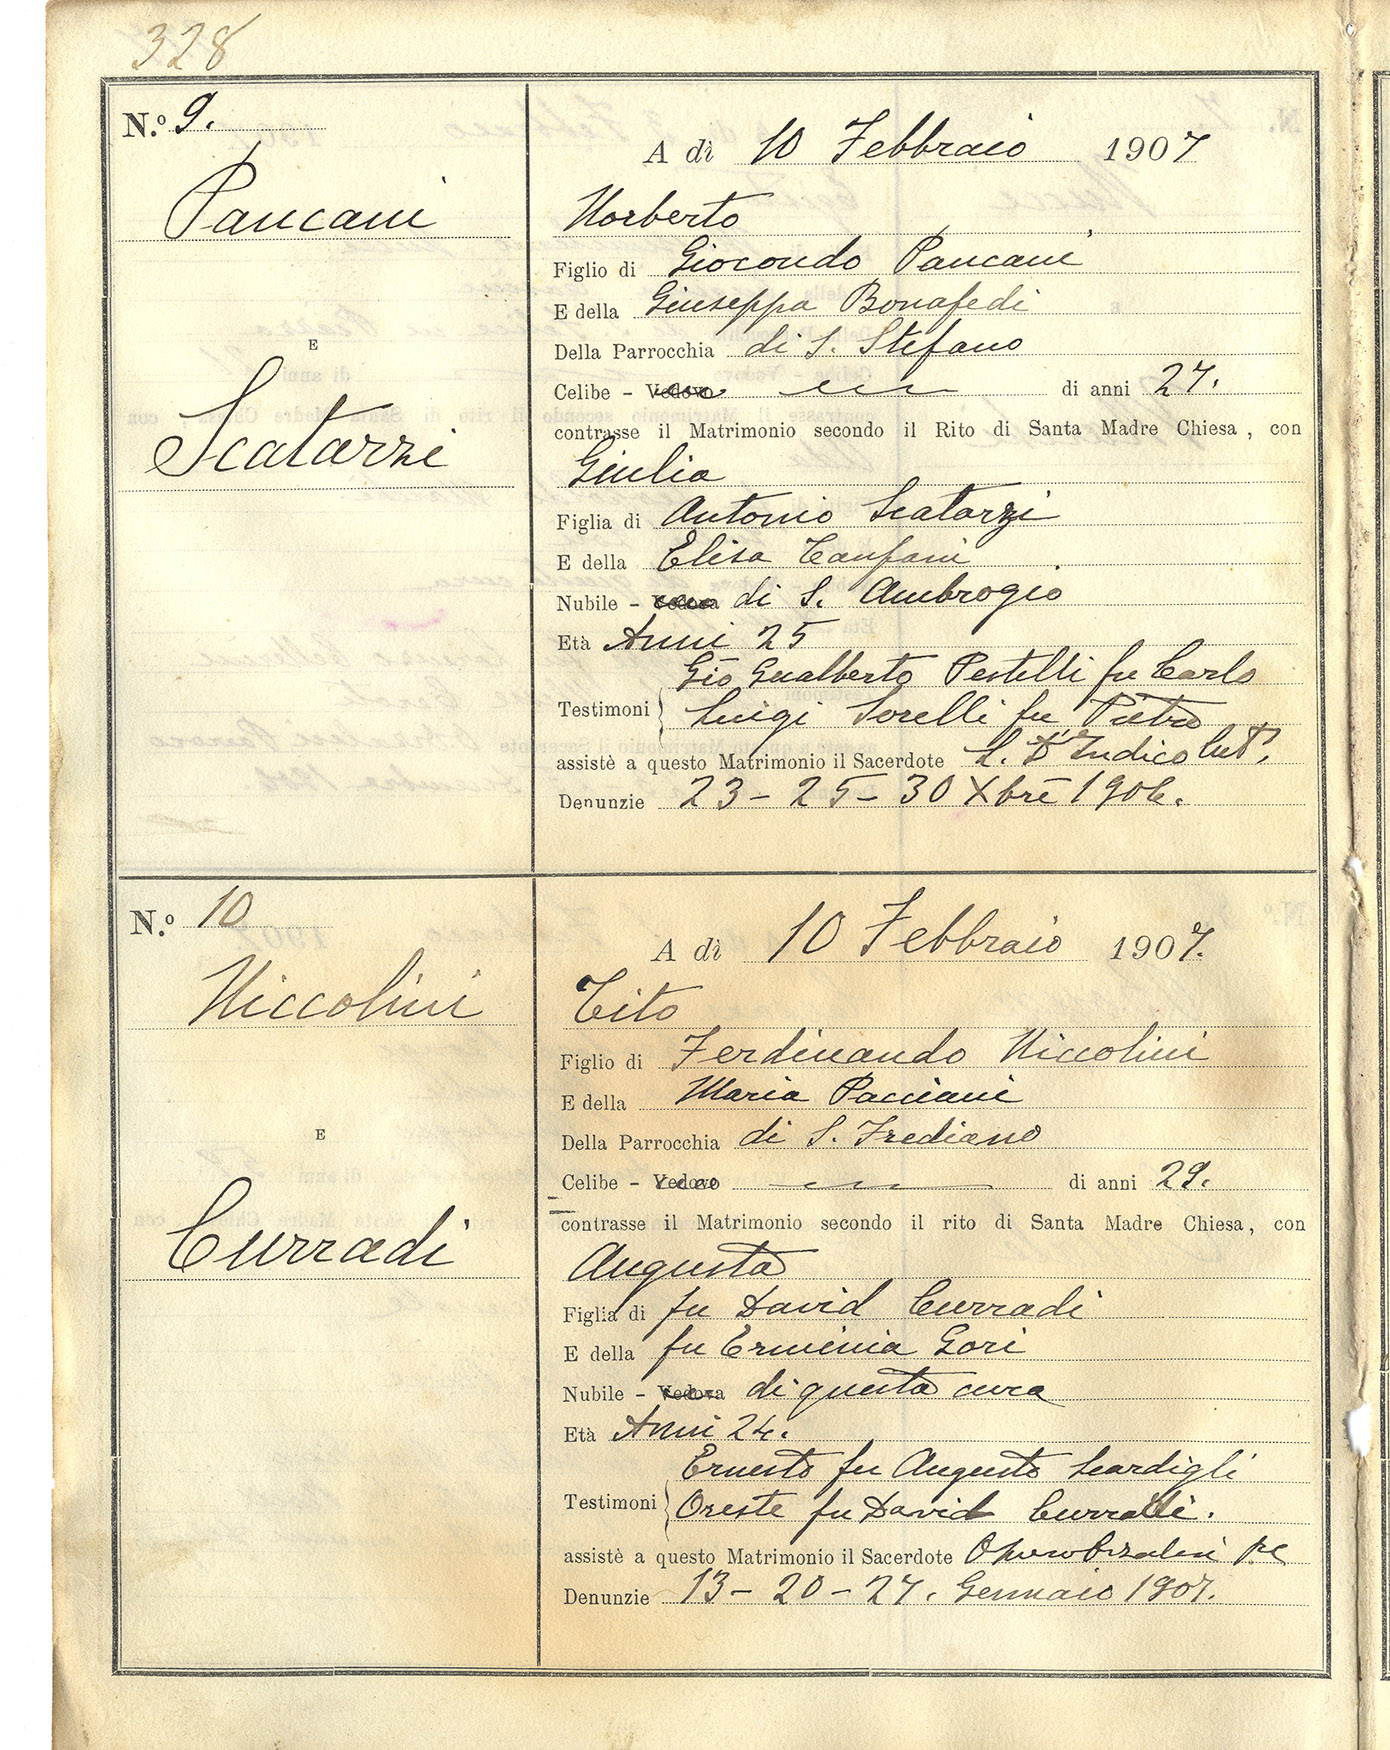 328
N.º 9.
A dì 10 Febbraio 1907
Pancani
E
Scatarzi
Norberto
Figlio di Giocondo Pancani
E della Giuseppa Bonafedi
Della Parrocchia di S. Stefano
Celibe - Vedovo di anni 27.
contrasse il Matrimonio secondo il Rito di Santa Madre Chiesa, con
Giulia
Figlia di Antonio Scatarzi
E della Elisa Tanfani
Nubile - Vedova di S. Ambrogio
Età Anni 25
Gio Gualberto Pestelli fu Carlo
Testimoni Luigi Sorelli fu Pietro
assistè a questo Matrimonio il Sacerdote
Denunzie 23 - 25 - 30 Xbre 1906.
N.º 10
A dì 10 Febbraio 1907.
Niccolini
E
Curradi
Tito
Figlio di Ferdinando Niccolini
E della Maria Pacciani
Della Parrocchia di S. Frediano
Celibe - Vedovo di anni 29.
contrasse il Matrimonio secondo il rito di Santa Madre Chiesa, con
Augusta
Figlia di fu David Curradi
E della fu Erminia Gori
Nubile - Vedova di questa cura
Età Anni 24.
Ernesto fu Augusto Scardigli
Testimoni Oreste fu David Curradi.
assistè a questo Matrimonio il Sacerdote
Denunzie 13 - 20 - 27. Gennaio 1907.